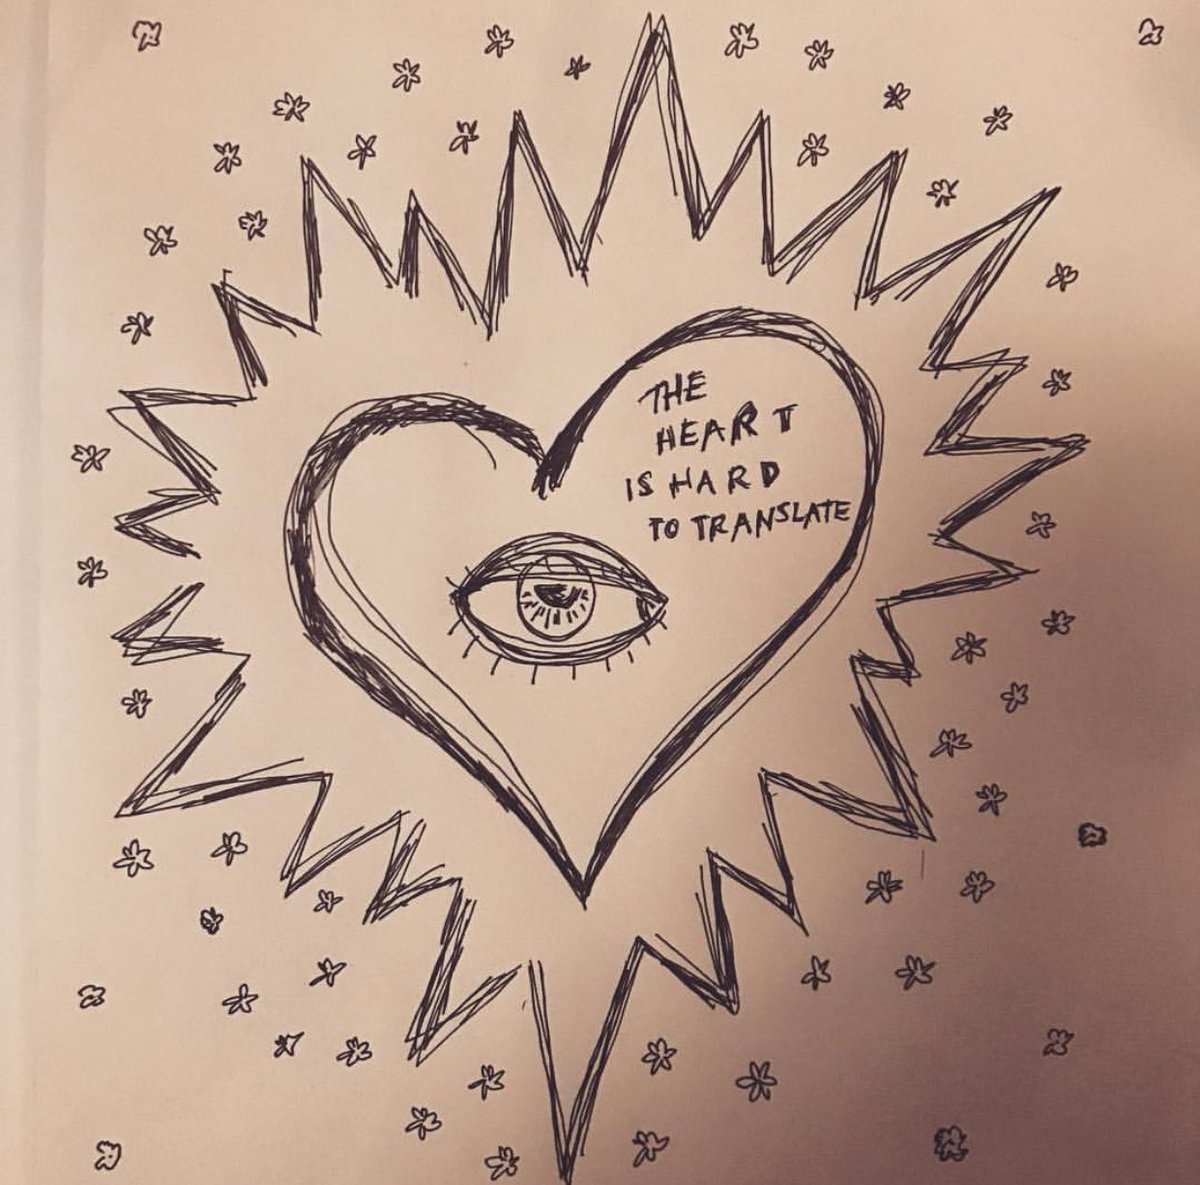 THE
HEART
IS HARD
TO TRANSLATE